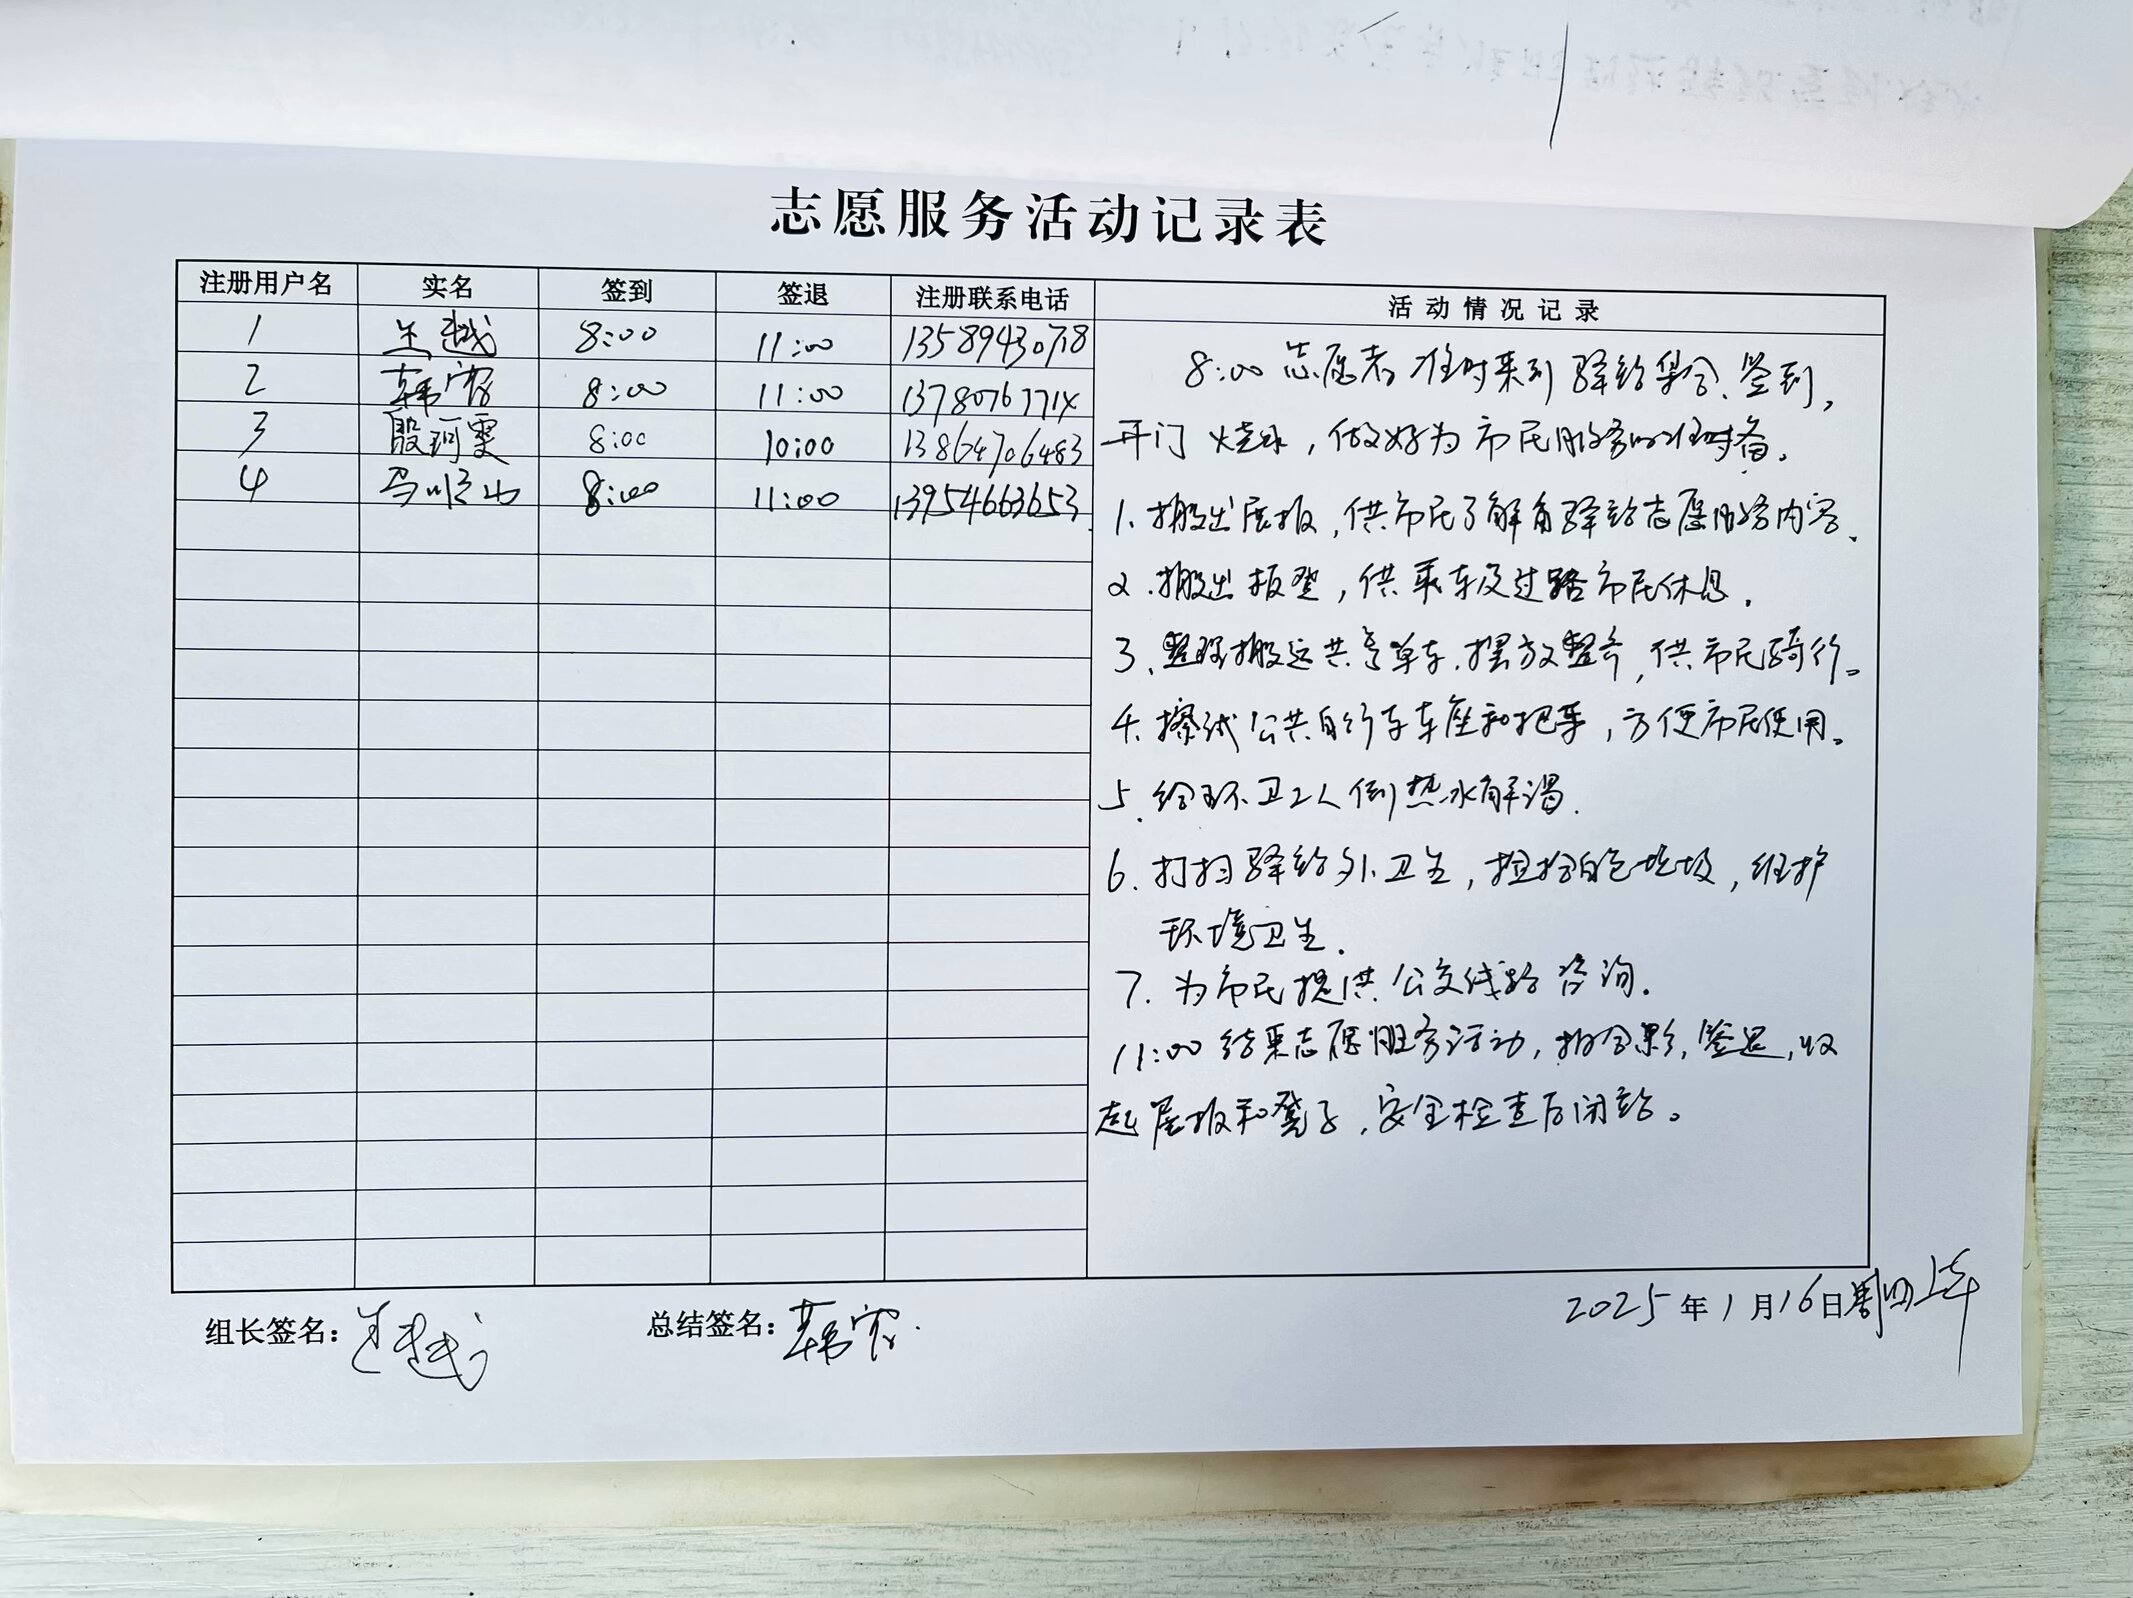 志愿服务活动记录表
注册用户名 实名 签到 签退 注册联系电话 活动情况记录
1 8:00 11:00 13589430718
2 韩容 8:00 11:00
3 殷珂雯 8:00 10:00 13864706483
4 8:00 11:00 13954663653
8:00 志愿者准时来到驿站集合、签到,
开门烧水,做好为市民服务的准备。
1、搬出展报,供市民了解角驿站志愿服务内容.
2.搬出板凳,供乘车及过路市民休息.
3、整理搬运共享单车.摆放整齐,供市民骑行。
4.擦拭公共自行车车座和把手,方便市民使用。
5.给环卫工人倒热水解渴.
6.打扫驿站外卫生,捡拾白色垃圾,维护
环境卫生.
7.为市民提供公交线路咨询.
11:00结束志愿服务活动,拍合影,签退,收
起展报和凳子,安全检查后闭站。
组长签名: 总结签名:韩容. 2025年1月16日周四上午